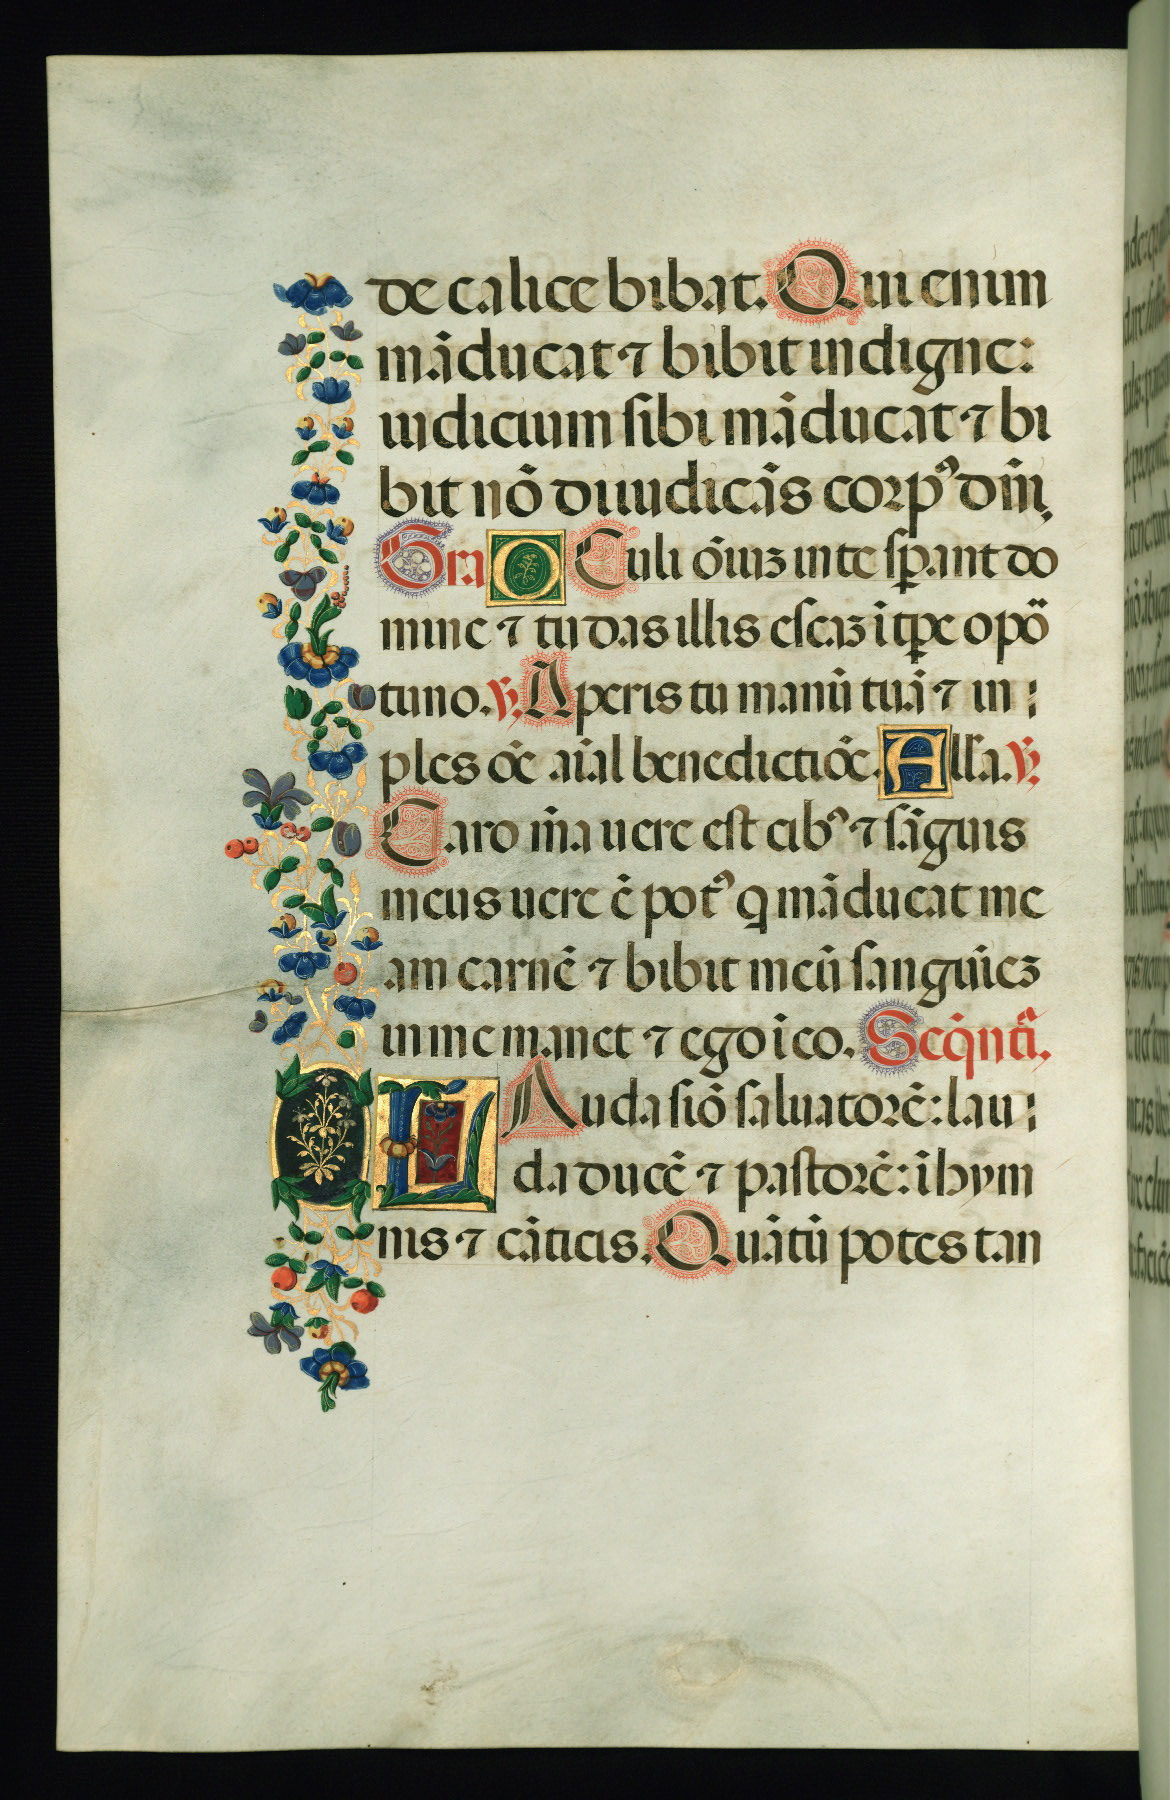 de calice bibat. Qui enim
māducat ⁊ bibit indigne:
iudicium sibi māducat ⁊ bi
bit nō diiudicās corpꝰ dn̄i,
Gra O Culi ōiuꝫ in te sꝑant do
mine ⁊ tu das illis escaꝫ ī tꝑe opō
tuno. ℣. Aperis tu manū tuā ⁊ in:
ples oē aīal benedictiōe. All'a. ℣.
Caro m̄a uere est cibꝰ ⁊ sāguis
meus uere ē potꝰ q māducat me
am carnē ⁊ bibit meū sanguīeꝫ
in me manet ⁊ ego ī eo. Seq̄ntīa.
LAuda siō saluatorē: lau:
da ducē ⁊ pastorē: ī hym
nis ⁊ cāticis. Quātū potes tan